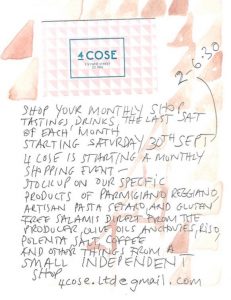 4COSE
2-6.30
SHOP YOUR MONTHLY SHOP
TASTINGS, DRINKS, THE LAST SAT
OF EACH MONTH
STARTING SATURDAY 30TH SEPT
4 COSE IS STARTING A MONTHLY
SHIPPING EVENT -
STOCK UP ON OUR SPECFIC
PRODUCTS OF PARMIGIANO REGGIANO,
ARTISAN PASTA SETARO, AND GLUTEN
FREE SALAMIS DIRECT FROM THE
PRODUCER, OLIVE OILS ANCHOVIES, RISO,
POLENTA SALT COFFEE
AND OTHER THINGS FROM A
SMALL INDEPENDENT
SHOP
4cose.ltd@gmail.com